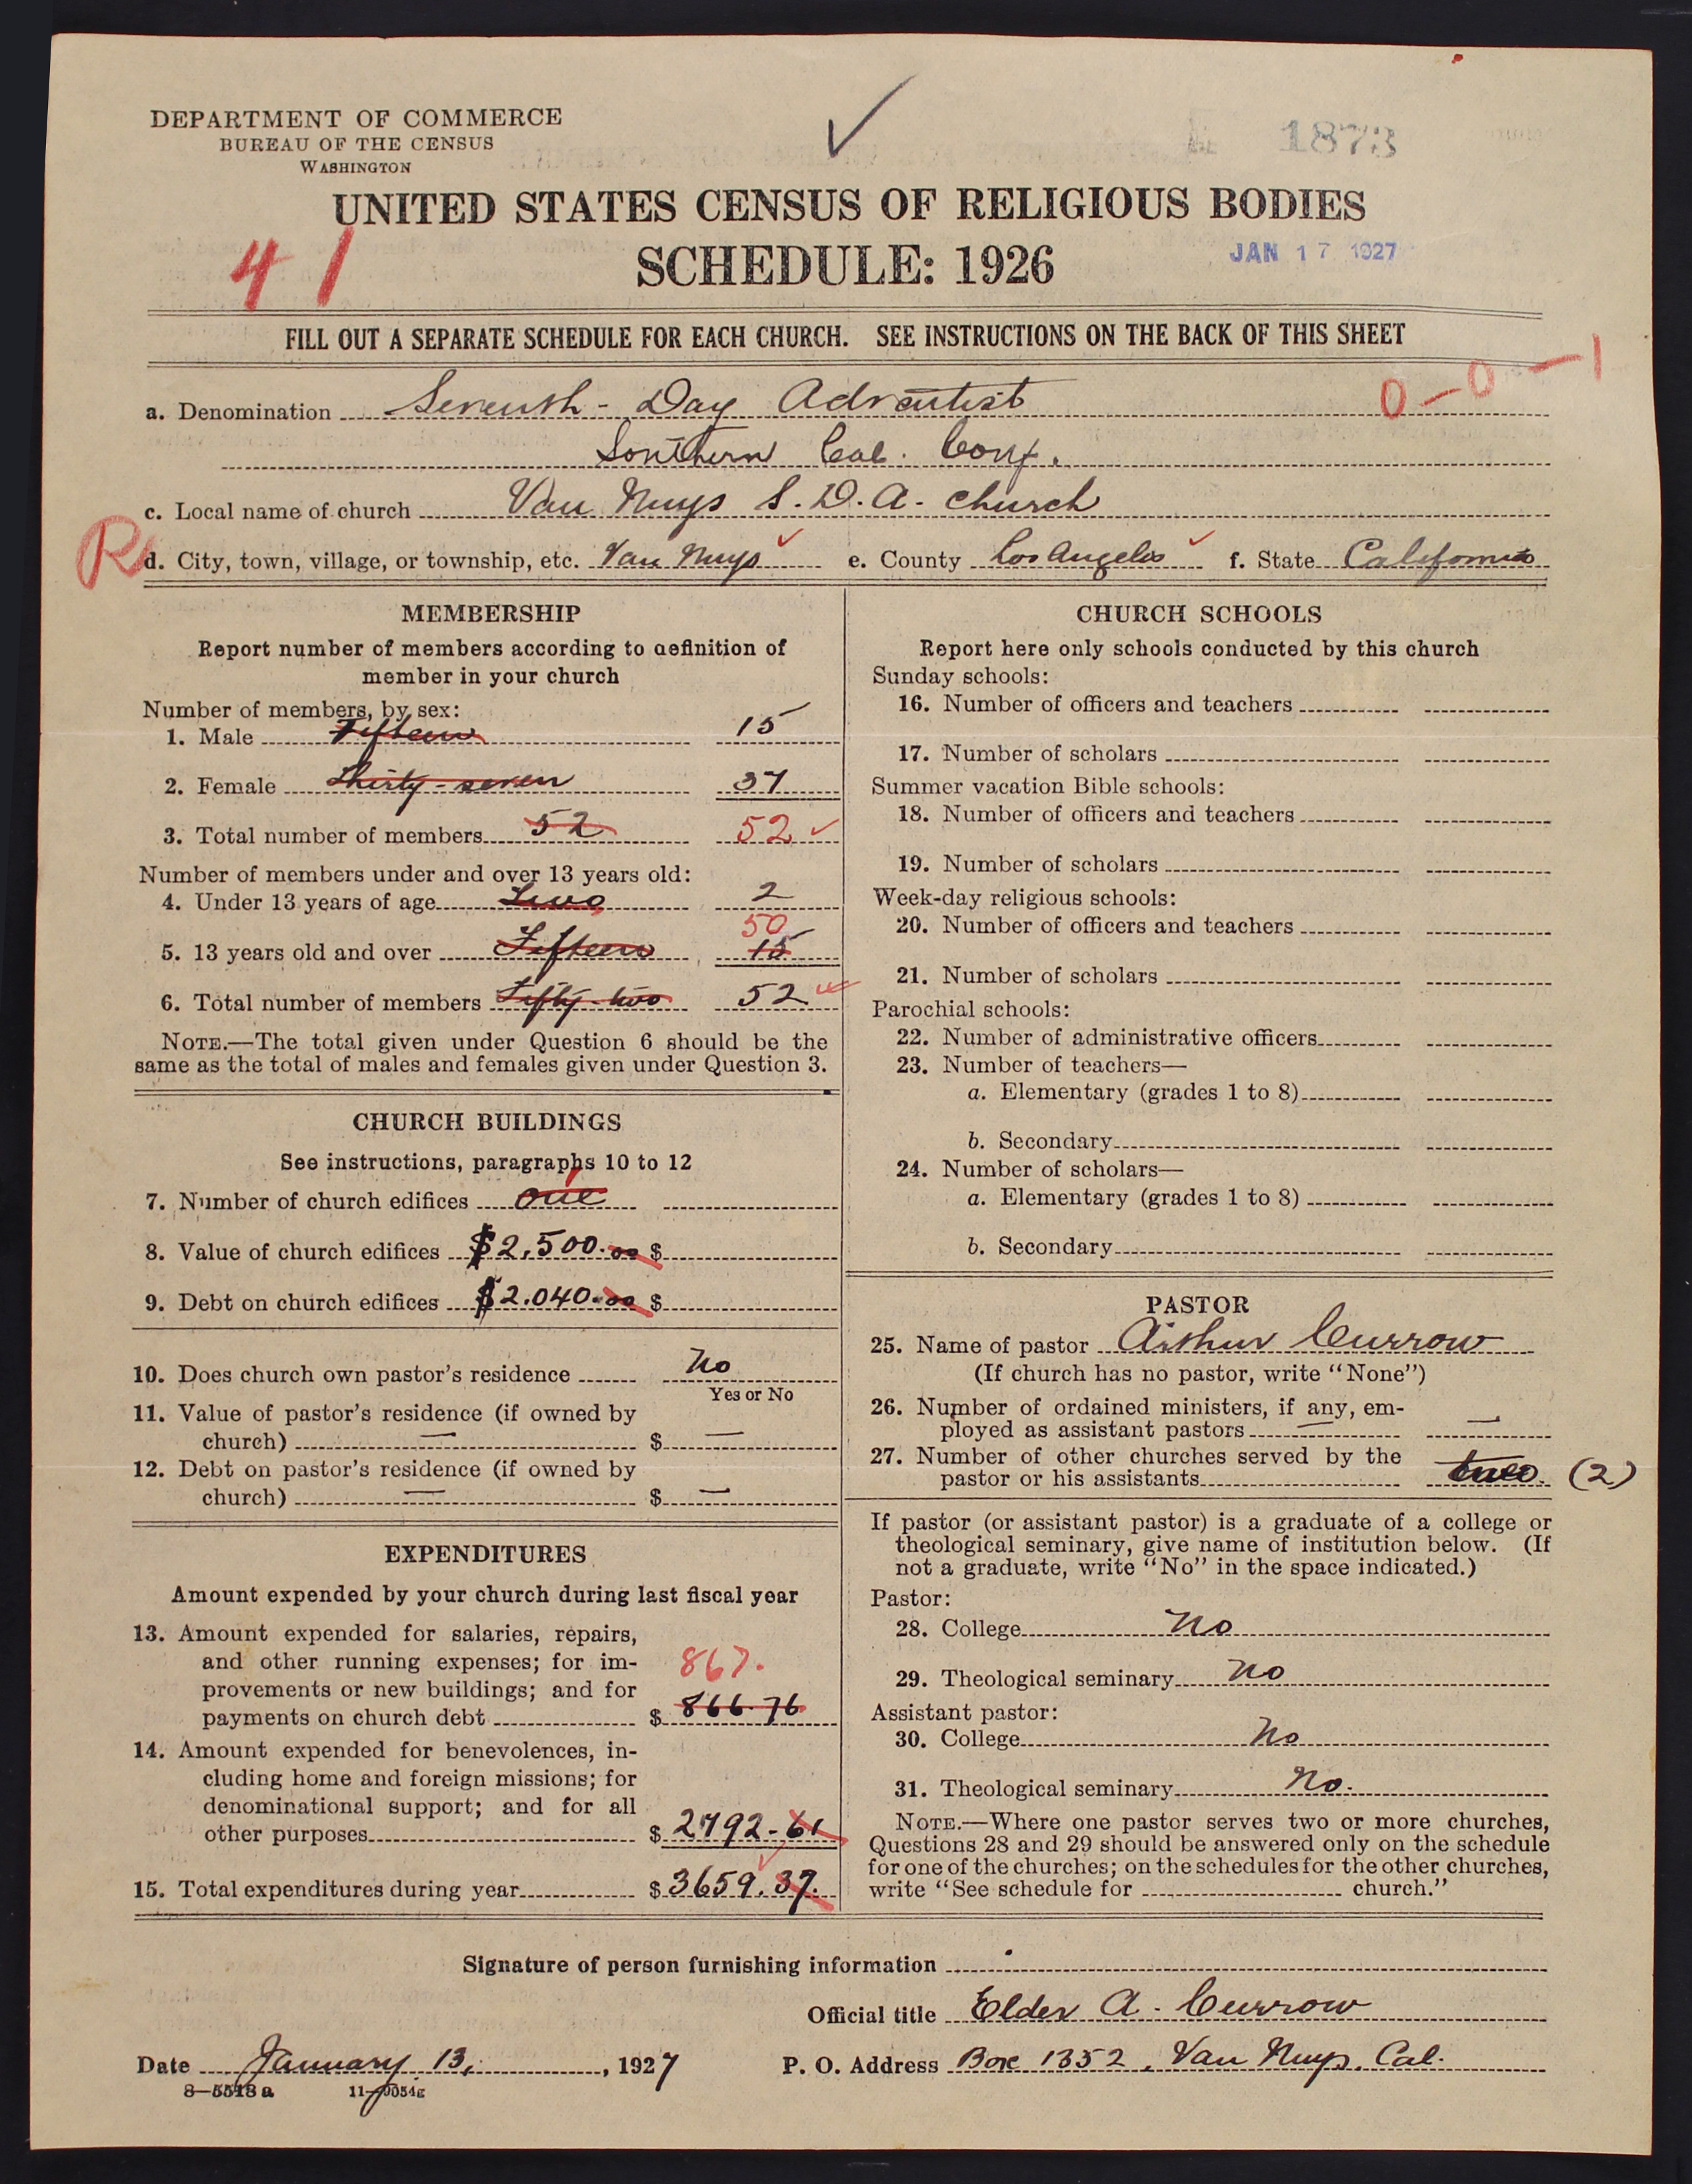 DEPARTMENT OF COMMERCE
BUREAU OF THE CENSUS
WASHINGTON
1873
UNITED STATES CENSUS OF RELIGIOUS BODIES
41
SCHEDULE: 1926
JAN 17 1927
FILL OUT A SEPARATE SCHEDULE FOR EACH CHURCH. SEE INSTRUCTIONS ON THE BACK OF THIS SHEET
0-0-1
a. Denomination Seventh-Day Adventist
Southern Cal. Conf.
c. Local name of church Van Nuys S.D.A. church
R
d. City, town, village, or township, etc. Van Nuys e. County Los Angeles f. State California
MEMBERSHIP
Report number of members according to definition of
member in your church
Number of members, by sex:
1. Male Fifteen 15
2. Female Thirty-seven 37
3. Total number of members 52 52
Number of members under and over 13 years old:
4. Under 13 years of age Two 2
50
5. 13 years old and over Fifteen 15
6. Total number of members Fifty-two 52
NOTE.—The total given under Question 6 should be the
same as the total of males and females given under Question 3.
CHURCH BUILDINGS
See instructions, paragraphs 10 to 12
1
7. Number of church edifices one
8. Value of church edifices $2,500.00 $
9. Debt on church edifices $2.040.00 $
10. Does church own pastor's residence No
Yes or No
11. Value of pastor's residence (if owned by
church) — $ —
12. Debt on pastor's residence (if owned by
church) — $ —
EXPENDITURES
Amount expended by your church during last fiscal year
13. Amount expended for salaries, repairs,
and other running expenses; for im-
867.
provements or new buildings; and for
payments on church debt $ 866.76
14. Amount expended for benevolences, in-
cluding home and foreign missions; for
denominational support; and for all
other purposes $ 2792-61
15. Total expenditures during year $ 3659.37.
CHURCH SCHOOLS
Report here only schools conducted by this church
Sunday schools:
16. Number of officers and teachers
17. Number of scholars
Summer vacation Bible schools:
18. Number of officers and teachers
19. Number of scholars
Week-day religious schools:
20. Number of officers and teachers
21. Number of scholars
Parochial schools:
22. Number of administrative officers
23. Number of teachers—
a. Elementary (grades 1 to 8)
b. Secondary
24. Number of scholars—
a. Elementary (grades 1 to 8)
b. Secondary
PASTOR
25. Name of pastor Arthur Currow
(If church has no pastor, write "None")
26. Number of ordained ministers, if any, em-
ployed as assistant pastors — —
27. Number of other churches served by the
pastor or his assistants two. (2)
If pastor (or assistant pastor) is a graduate of a college or
theological seminary, give name of institution below. (If
not a graduate, write "No" in the space indicated.)
Pastor:
28. College No
29. Theological seminary No
Assistant pastor:
30. College No
31. Theological seminary No.
NOTE.—Where one pastor serves two or more churches,
Questions 28 and 29 should be answered only on the schedule
for one of the churches; on the schedules for the other churches,
write "See schedule for church."
Signature of person furnishing information
Official title Elder A. Currow
Date January 13, 1927 P. O. Address Box 1352, Van Nuys, Cal.
8—5518 a